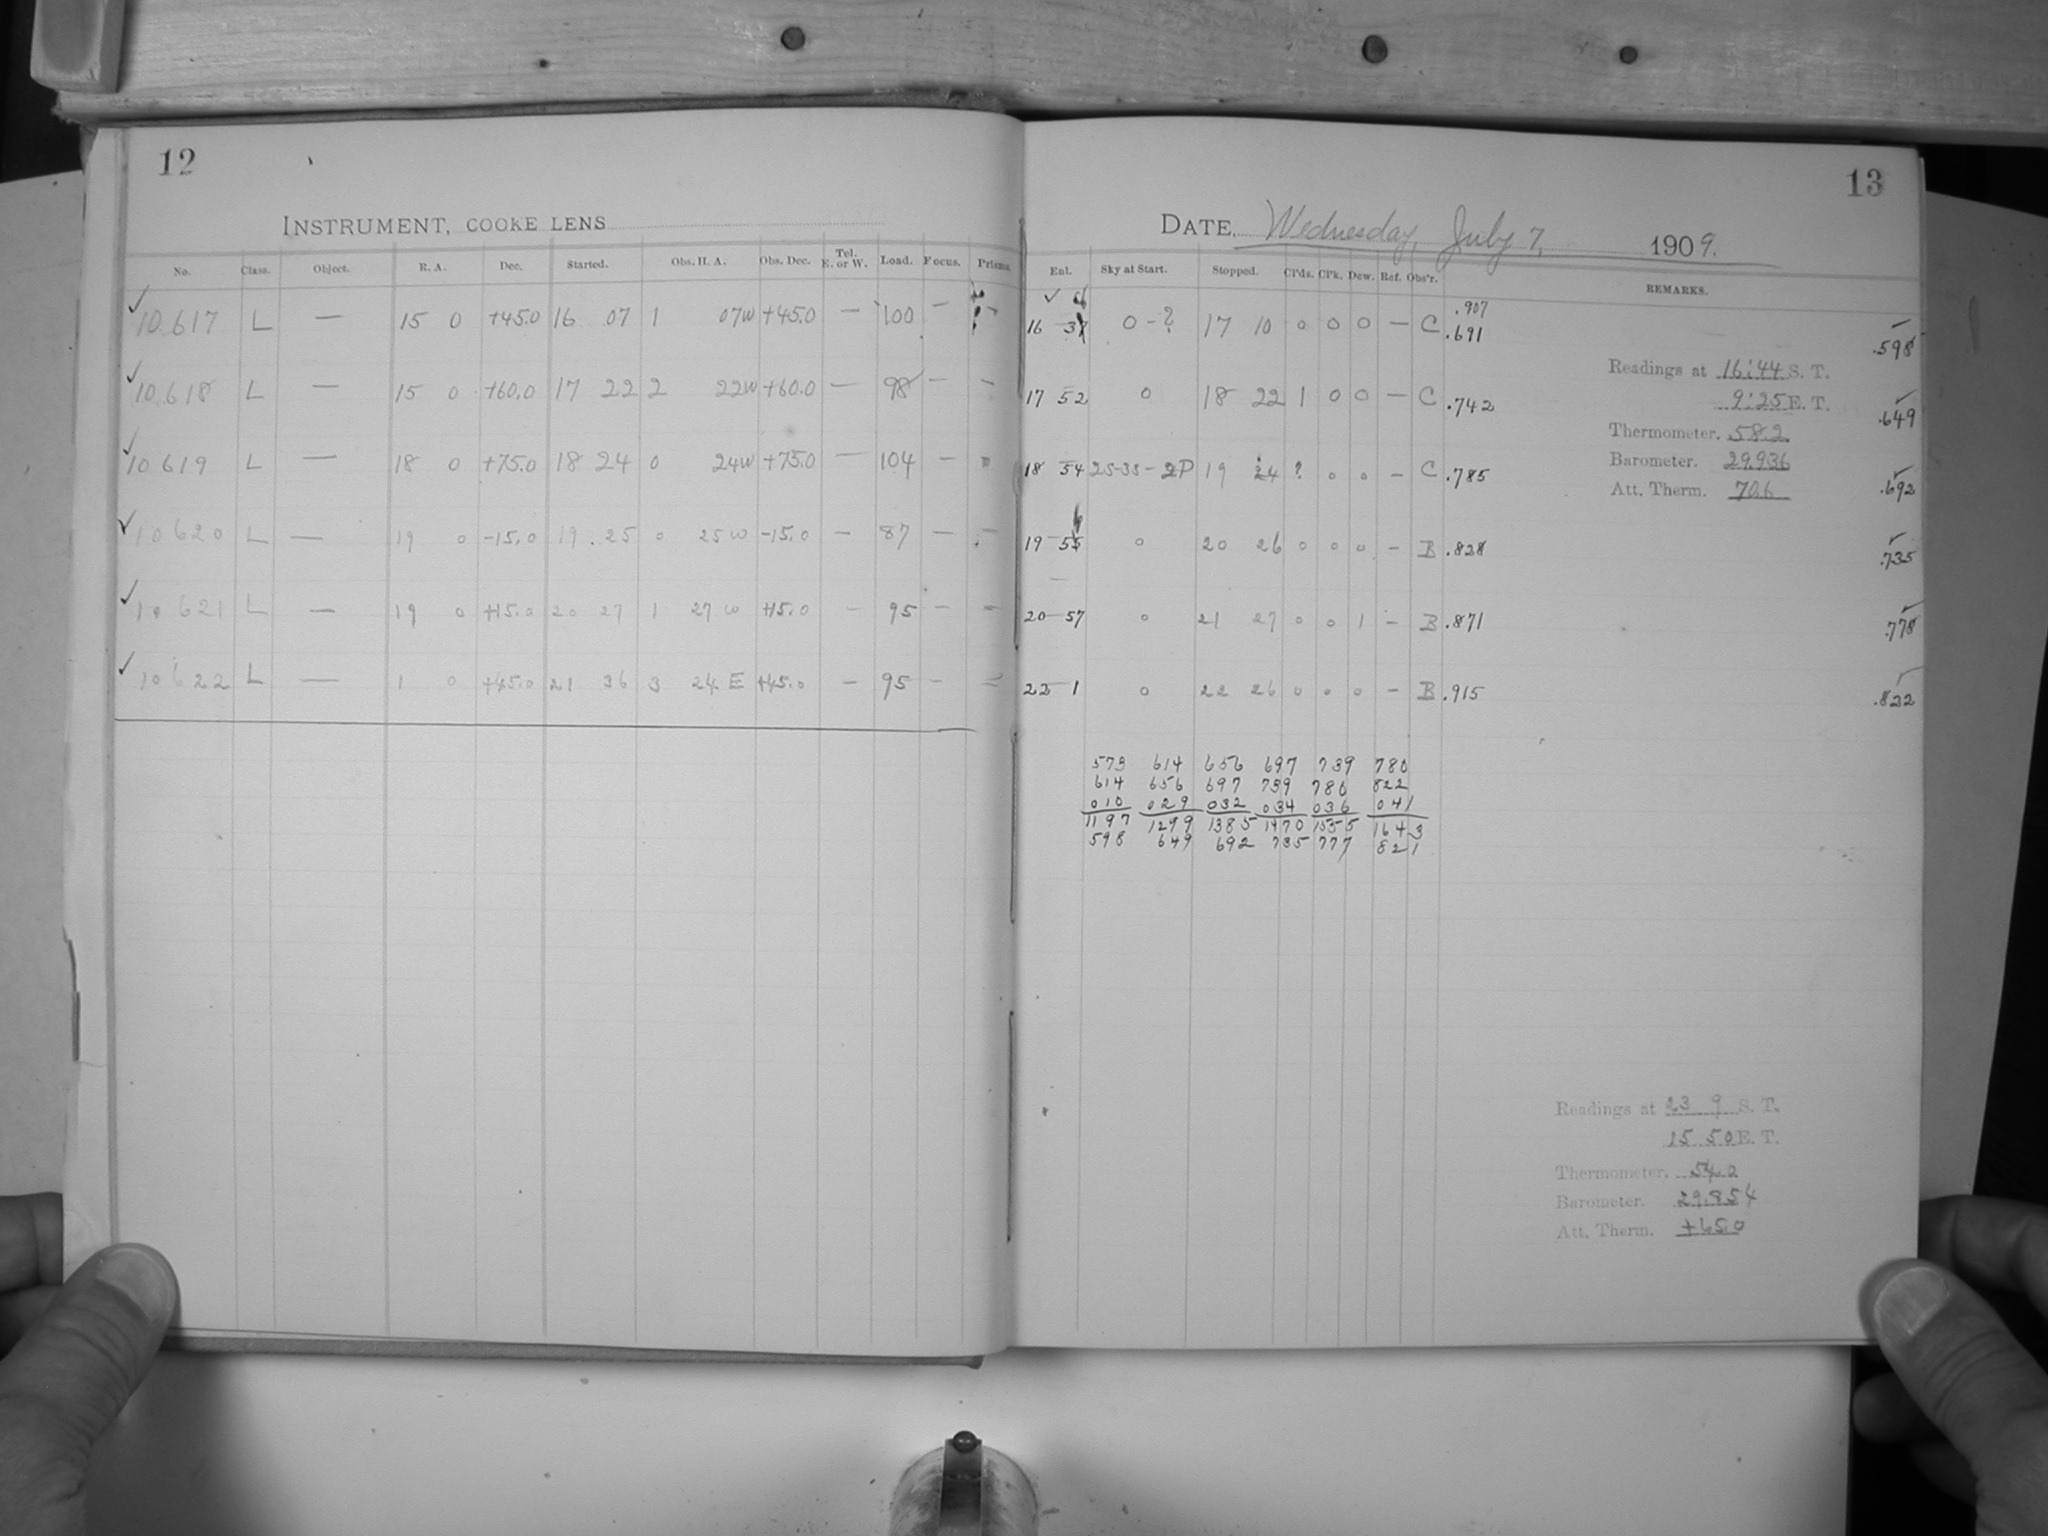 12
INSTRUMENT, COOKE LENS
No. Class. Object. R. A. Dec. Started. Obs. H. A. Obs. Dec. Tel. E. or W. Load. Focus. Prisms.
10617 L — 15 0 +45.0 16 07 1 07W +45.0 — 100 — —
10618 L — 15 0 +60.0 17 22 2 22W +60.0 — 98 — —
10619 L — 18 0 +75.0 18 24 0 24W +75.0 — 104 —
10620 L — 19 0 -15.0 19 25 0 25W -15.0 — 87 — —
10621 L — 19 0 +15.0 20 27 1 27W +15.0 — 95 — —
10622 L — 1 0 +45.0 21 36 3 24E +45.0 — 95 — —
13
DATE, Wednesday, July 7, 1909.
Ent. Sky at Start. Stopped. Cl'ds. Cl'k. Dew. Ref. Obs'r. REMARKS.
16 0-? 17 10 0 0 0 — C .907 .691 .598
17 52 0 18 22 1 0 0 — C .742 .649
18 54 2S-3S-2P 19 24 ? 0 0 — C .785 .692
19 0 20 26 0 0 0 — B .828 .735
20 57 0 21 27 0 0 1 — B .871 .778
22 1 0 22 26 0 0 0 — B .915 .822
Readings at 16:44 S. T.
9:25 E. T.
Thermometer. 58.2
Barometer. 29.936
Att. Therm. 70.6
573 614 656 697 739 780
614 656 697 739 780 822
010 029 032 034 036 041
1197 1299 1385 1470 1555 1643
598 649 692 735 777 821
Readings at 23 9 S. T.
15 50 E. T.
Thermometer. 54.0
Barometer. 29.854
Att. Therm. +65.0